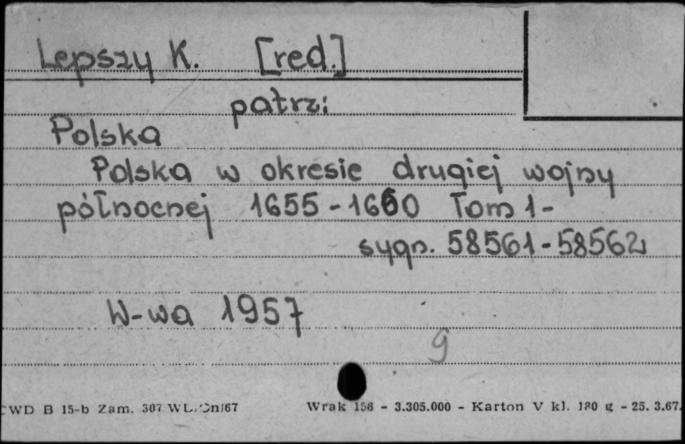 Lepszy K. [red.]
patrz:
Polska
Polska w okresie drugiej wojny
północnej 1655-1660 Tom 1-
sygn. 58561-58562
W-wa 1957
9
CWD B 15-b Zam. 307 Wrak 156 - 3.305.000 - Karton V kl. 180 g - 25. 3.67.